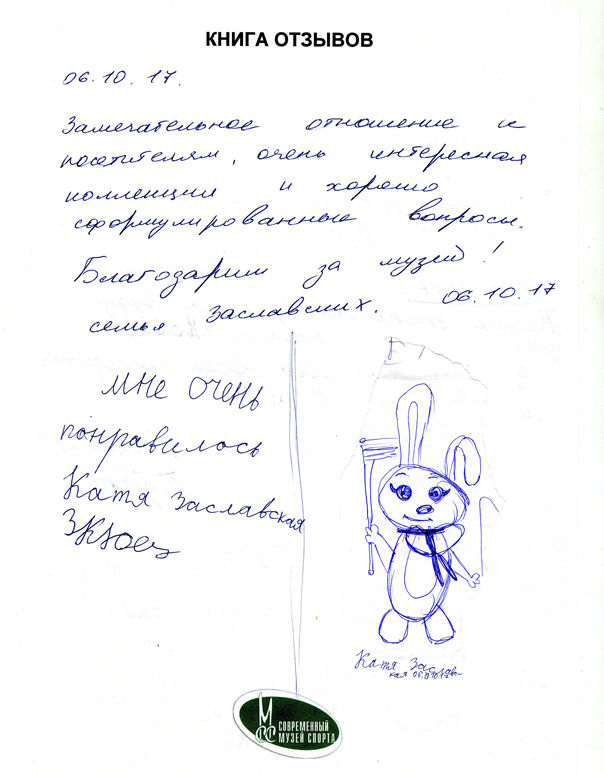 КНИГА ОТЗЫВОВ
06.10.17.
Замечательное отношение к
посетителям, очень интересная
коллекция и хорошо
сформулированные вопросы.
Благодарим за музей!
семья Заславских. 06.10.17
мне очень
понравилось
Катя Заславская
Катя Заслав
кая
МСС
СОВРЕМЕННЫЙ
МУЗЕЙ СПОРТА